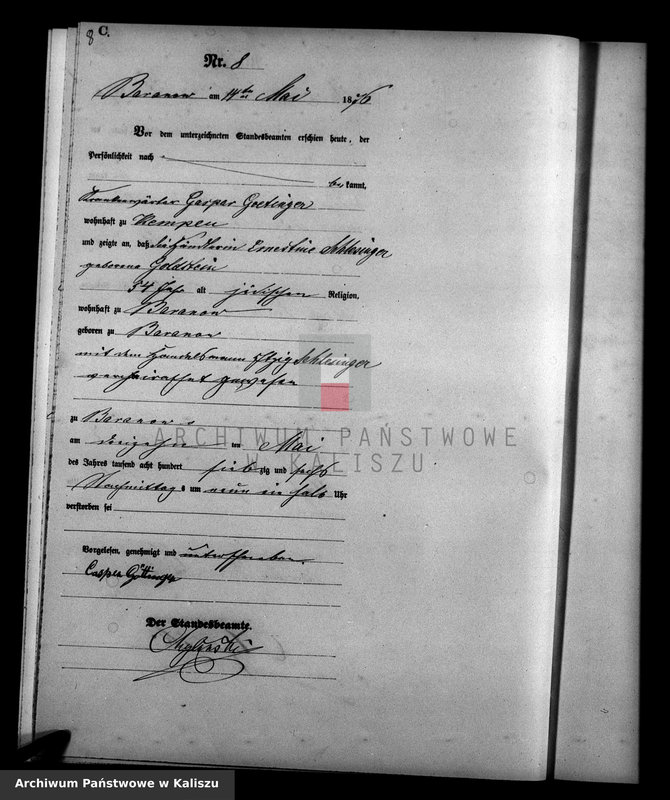 8 C.
Nr. 8
Baranow am 14ten Mai 1876
Vor dem unterzeichneten Standesbeamten erschien heute, der
Persönlichkeit nach
be kannt,
Krankenwärter Casper Goetinger
wohnhaft zu Kempen
und zeigte an, daß die Händlerin Ernestine Schlesinger
geborene Goldstein
54 Jahr alt jüdischen Religion,
wohnhaft zu Baranow
geboren zu Baranow
mit dem Handelsmann Itzig Schlesinger
verheirathet gewesen
zu Baranow
am dreizehn ten Mai
des Jahres tausend acht hundert sieb zig und sechs
Nachmittags um neun ein halb Uhr
verstorben sei
Vorgelesen, genehmigt und unterschrieben
Casper Göttinger
Der Standesbeamte.
ARCHIWUM PAŃSTWOWE
W KALISZU
Archiwum Państwowe w Kaliszu